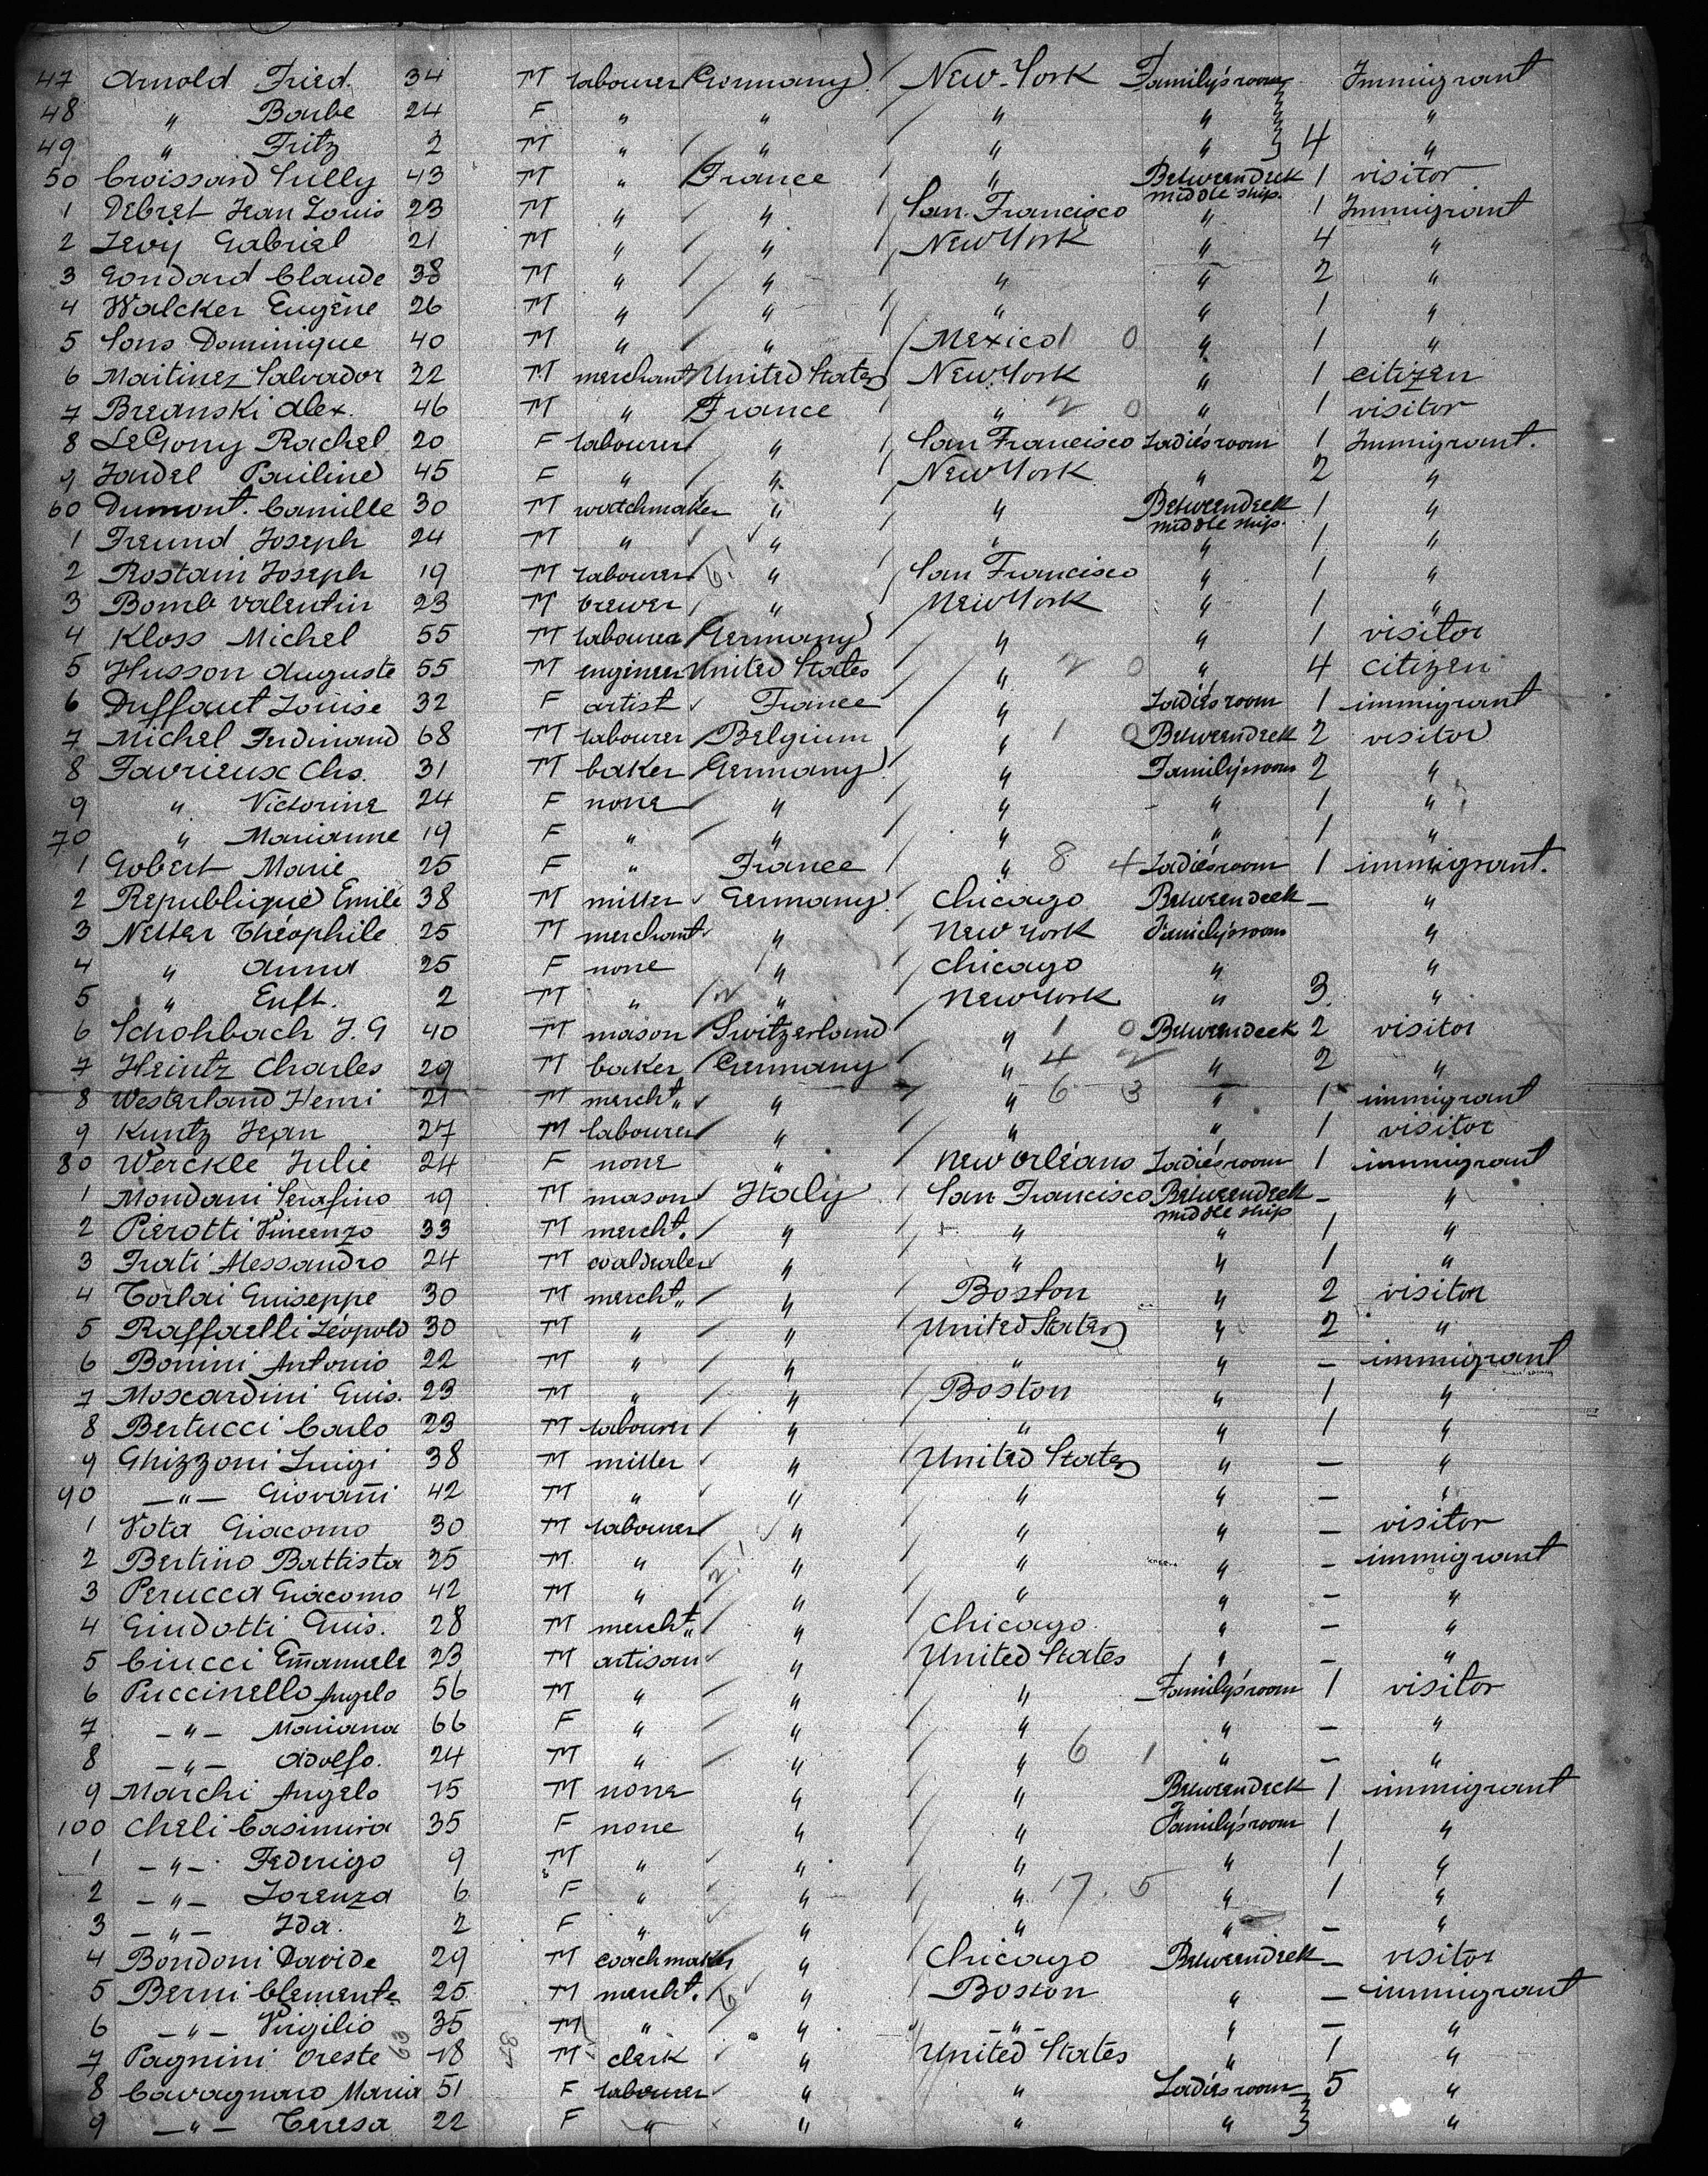 47 Arnold Fried. 34 M labourer Germany New-York Family's room Immigrant
48 " Barbe 24 F " " " " "
49 " Fritz 2 M " " " " 4 "
50 Croissard Sully 43 M " France " Betweendeck middle ship. 1 visitor
1 Debret Jean Louis 23 M " " San Francisco " 1 Immigrant
2 Levy Gabriel 21 M " " New York " 4 "
3 Gondard Claude 38 M " " " " 2 "
4 Walcker Eugène 26 M " " " " 1 "
5 Sons Dominique 40 M " " Mexico 1 0 " 1 "
6 Maitinez Salvador 32 M merchant United States New York " 1 citizen
7 Breanski Alex. 46 M " France " 2 0 " 1 visitor
8 LeGony Rachel 20 F labourer " San Francisco Ladie's room 1 Immigrant.
9 Jaudel Pauline 45 F " " New York " 2 "
60 Dumont. Camille 30 M watchmaker " " Betweendeck middle ship. 1 "
1 Freund Joseph 24 M " " " " 1 "
2 Rostain Joseph 19 M labourer " San Francisco " 1 "
3 Bomb Valentin 23 M brewer " New York " 1 "
4 Kloss Michel 55 M labourer Germany " " 1 visitor
5 Husson Auguste 55 M engineer United States " 2 0 " 4 citizen
6 Duffaut Louise 32 F artist France " Ladie's room 1 immigrant
7 Michel Ferdinand 68 M labourer Belgium " 1 0 Betweendeck 2 visitor
8 Favrieux Chs. 31 M baker Germany " Family's room 2 "
9 " Victorine 24 F none " " " 1 "
70 " Marianne 19 F " " " " 1 "
1 Gobert Marie 25 F " France " 8 4 Ladie's room 1 immigrant.
2 Republique Emile 38 M miller Germany Chicago Betweendeck — "
3 Netter Théophile 25 M merchant " New York Family's room "
4 " Anna 25 F none " Chicago " "
5 " Enft. 2 M " " New York " 3. "
6 Schohbach J. G 40 M mason Switzerland " 1 0 Betweendeck 2 visitor
7 Heintz Charles 29 M baker Germany " 4 2 " 2 "
8 Westerland Henri 21 M mercht " " 6 3 " 1 immigrant
9 Kuntz Jean 27 M labourer " " " 1 visitor
80 Werckle Julie 24 F none " New Orléans Ladie's room 1 immigrant
1 Mondani Serafino 19 M mason Italy San Francisco Betweendeck middle ship — "
2 Pierotti Vincenzo 33 M mercht. " " " 1 "
3 Frati Alessandro 24 M coaldealer " " " 1 "
4 Torlai Guiseppe 30 M mercht " Boston " 2 visitor
5 Raffaelli Léopold 30 M " " United States " 2 "
6 Bonini Antonio 22 M " " " " — immigrant
7 Moscardini Guis. 23 M " " Boston " 1 "
8 Bertucci Carlo 23 M labourer " " " 1 "
9 Ghizzoni Luigi 38 M miller " United States " — "
90 —"— Giovañi 42 M " " " " — "
1 Vota Giacomo 30 M labourer " " " — visitor
2 Bertino Battista 25 M " " " " — immigrant
3 Perucca Giacomo 42 M " " " " — "
4 Giudotti Guis. 28 M mercht " Chicago " — "
5 Ciucci Emañuele 23 M artisan " United States " — "
6 Puccinello Angelo 56 M " " " Family's room 1 visitor
7 —"— Mariana 66 F " " " " — "
8 —"— Adolfo. 24 M " " " 6 1 " — "
9 Marchi Angelo 15 M none " " Betweendeck 1 immigrant
100 Cheli Casimira 35 F none " " Family's room 1 "
1 —"— Federigo 9 M " " " " 1 "
2 —"— Lorenza 6 F " " " 17. 5 " 1 "
3 —"— Ida. 2 F " " " " — "
4 Bondoni Davide 29 M coachmaker " Chicago Betweendeck — visitor
5 Berni Clemente 25 M mercht. " Boston " — immigrant
6 —"— Virgilio 35 M " " —"— " — "
7 Pagnini Oreste 18 M clerk " United States " 1 "
8 Cavagnaro Maria 51 F labourer " " Ladie's room 5 "
9 —"— Teresa 22 F " " " " "